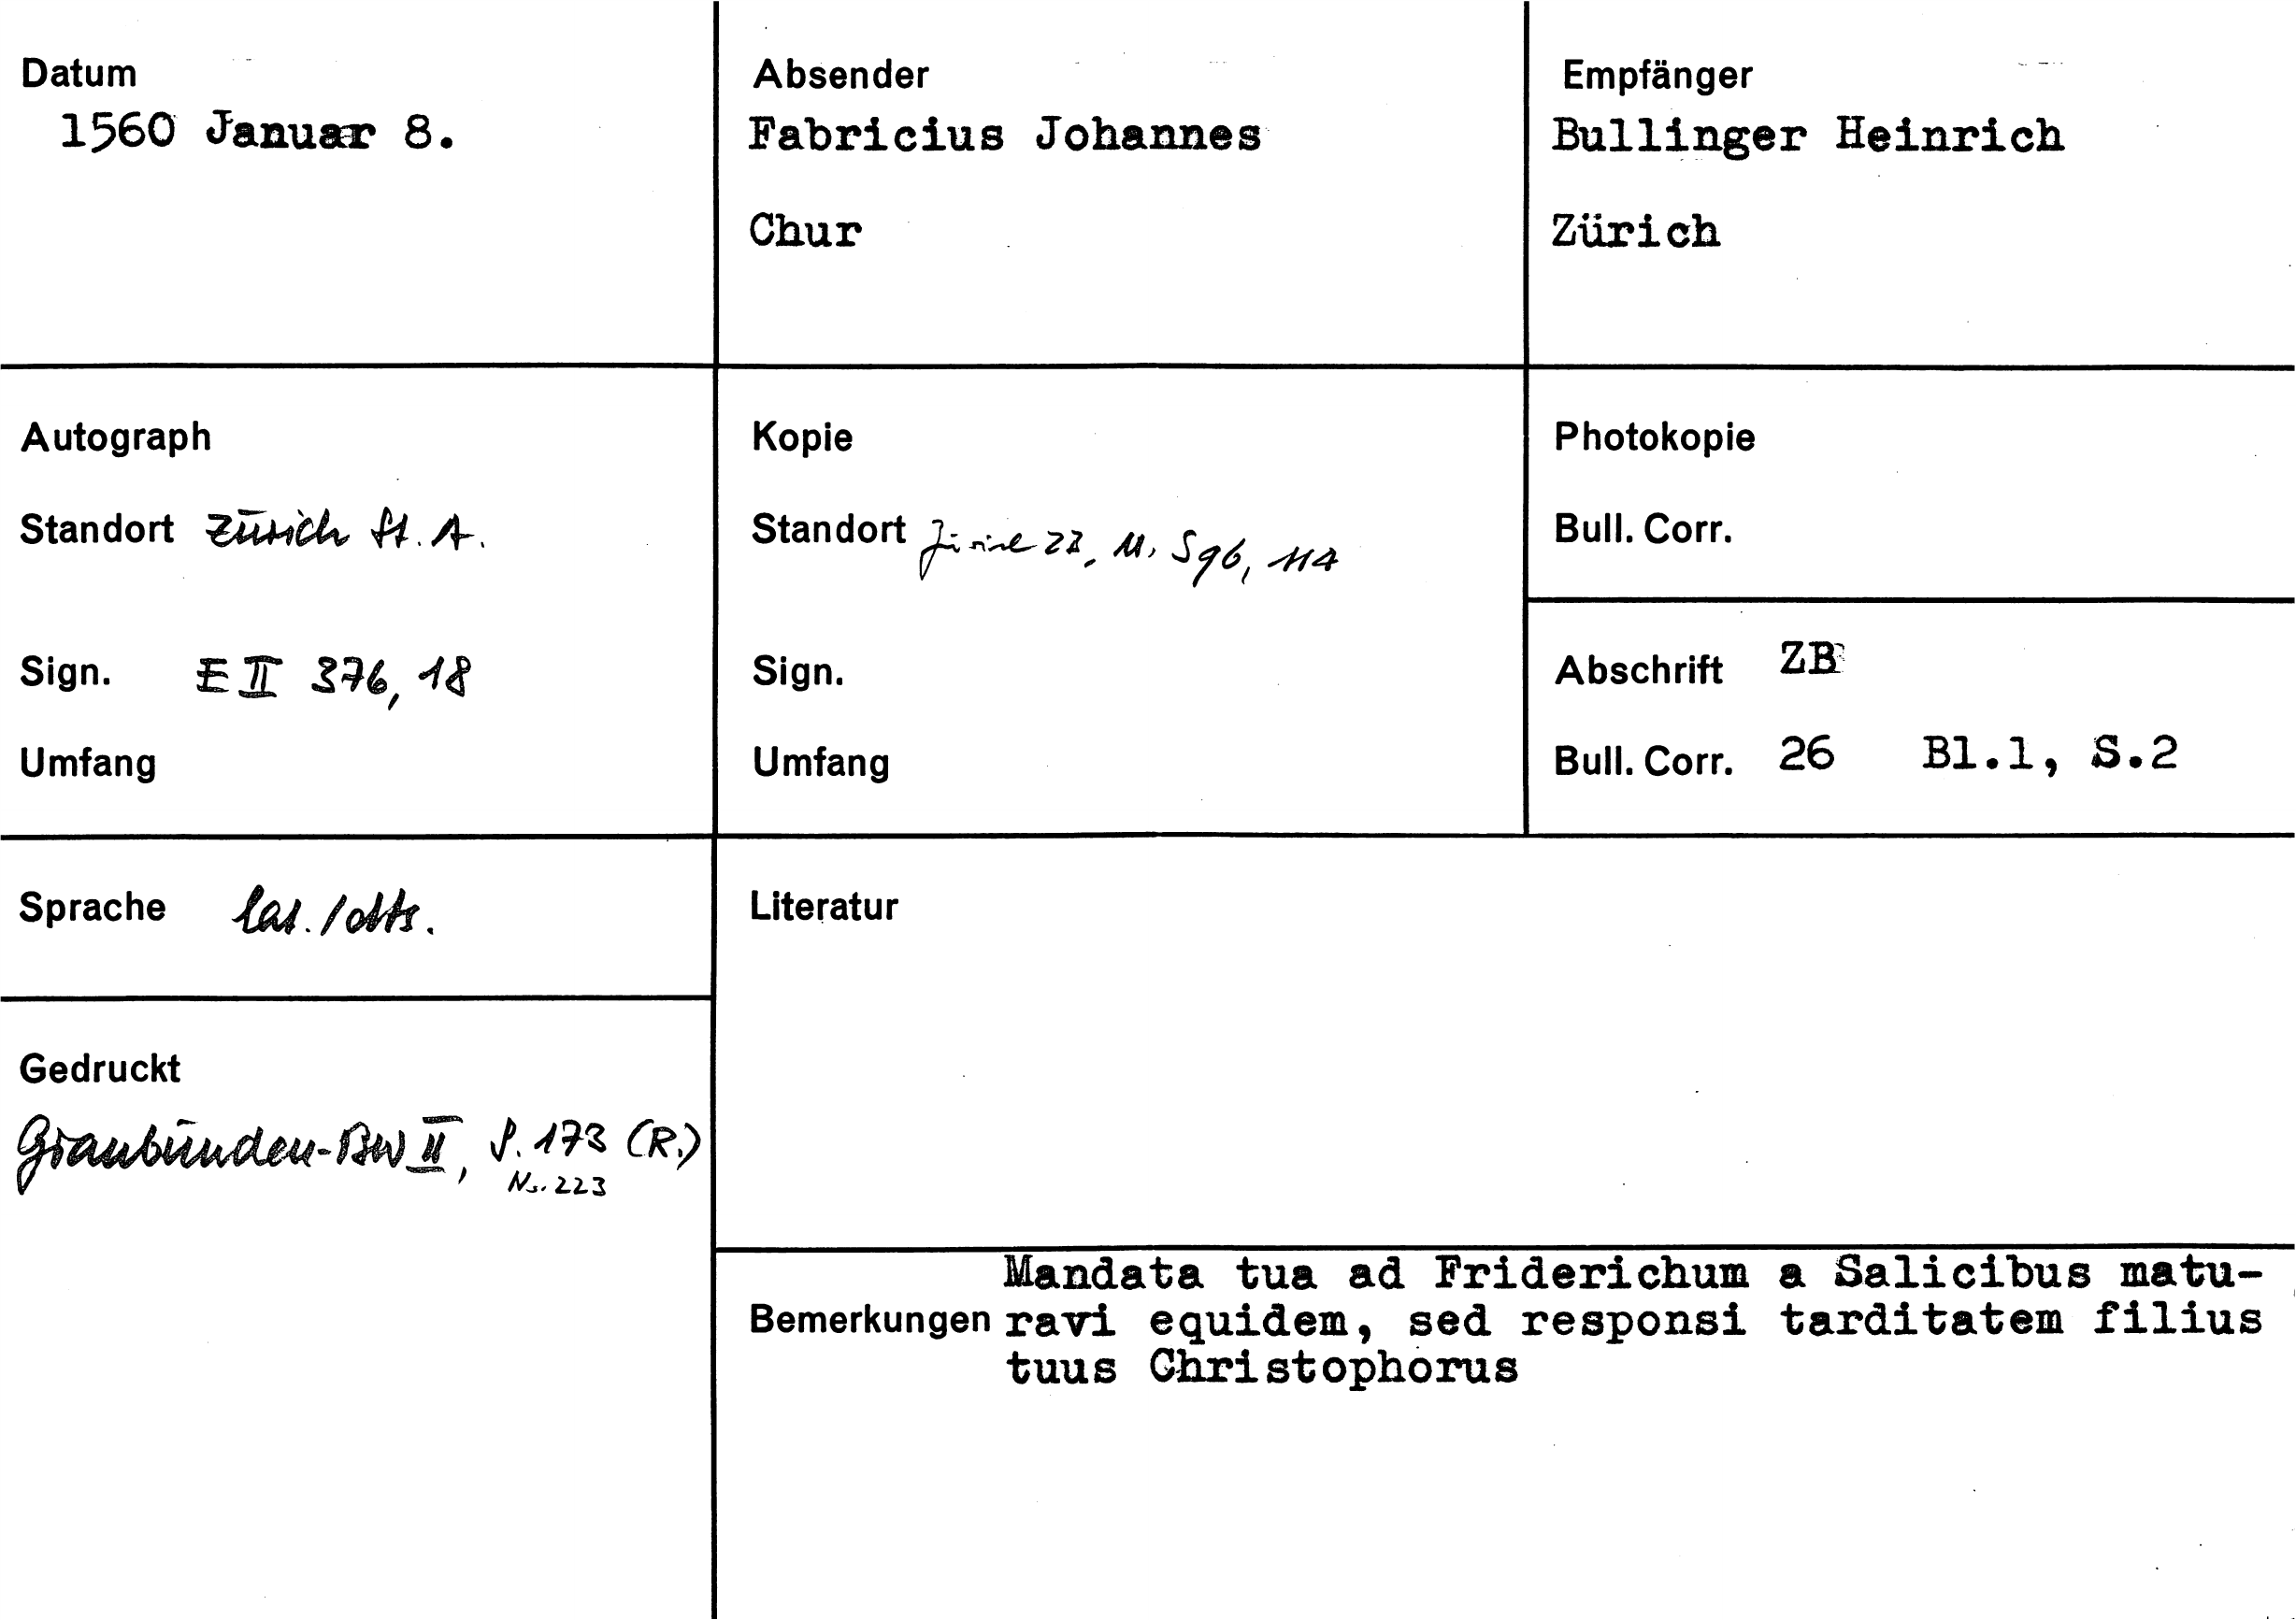 Datum
1560 Januar 8.
Absender
Fabricius Johannes
Chur
Empfänger
Bullinger Heinrich
Zürich
Autograph
Standort Zürich St. A.
Sign. E II 376, 18
Umfang
Kopie
Standort Zürich ZB, M. S 96, 114
Sign.
Umfang
Photokopie
Bull. Corr.
Abschrift ZB
Bull. Corr. 26 Bl.1, S.2
Sprache lat. / dts.
Gedruckt
Graubünden-BW II, S. 173 (R.)
Nr. 223
Literatur
Mandata tua ad Friderichum a Salicibus matu-
Bemerkungen ravi equidem, sed responsi tarditatem filius
tuus Christophorus